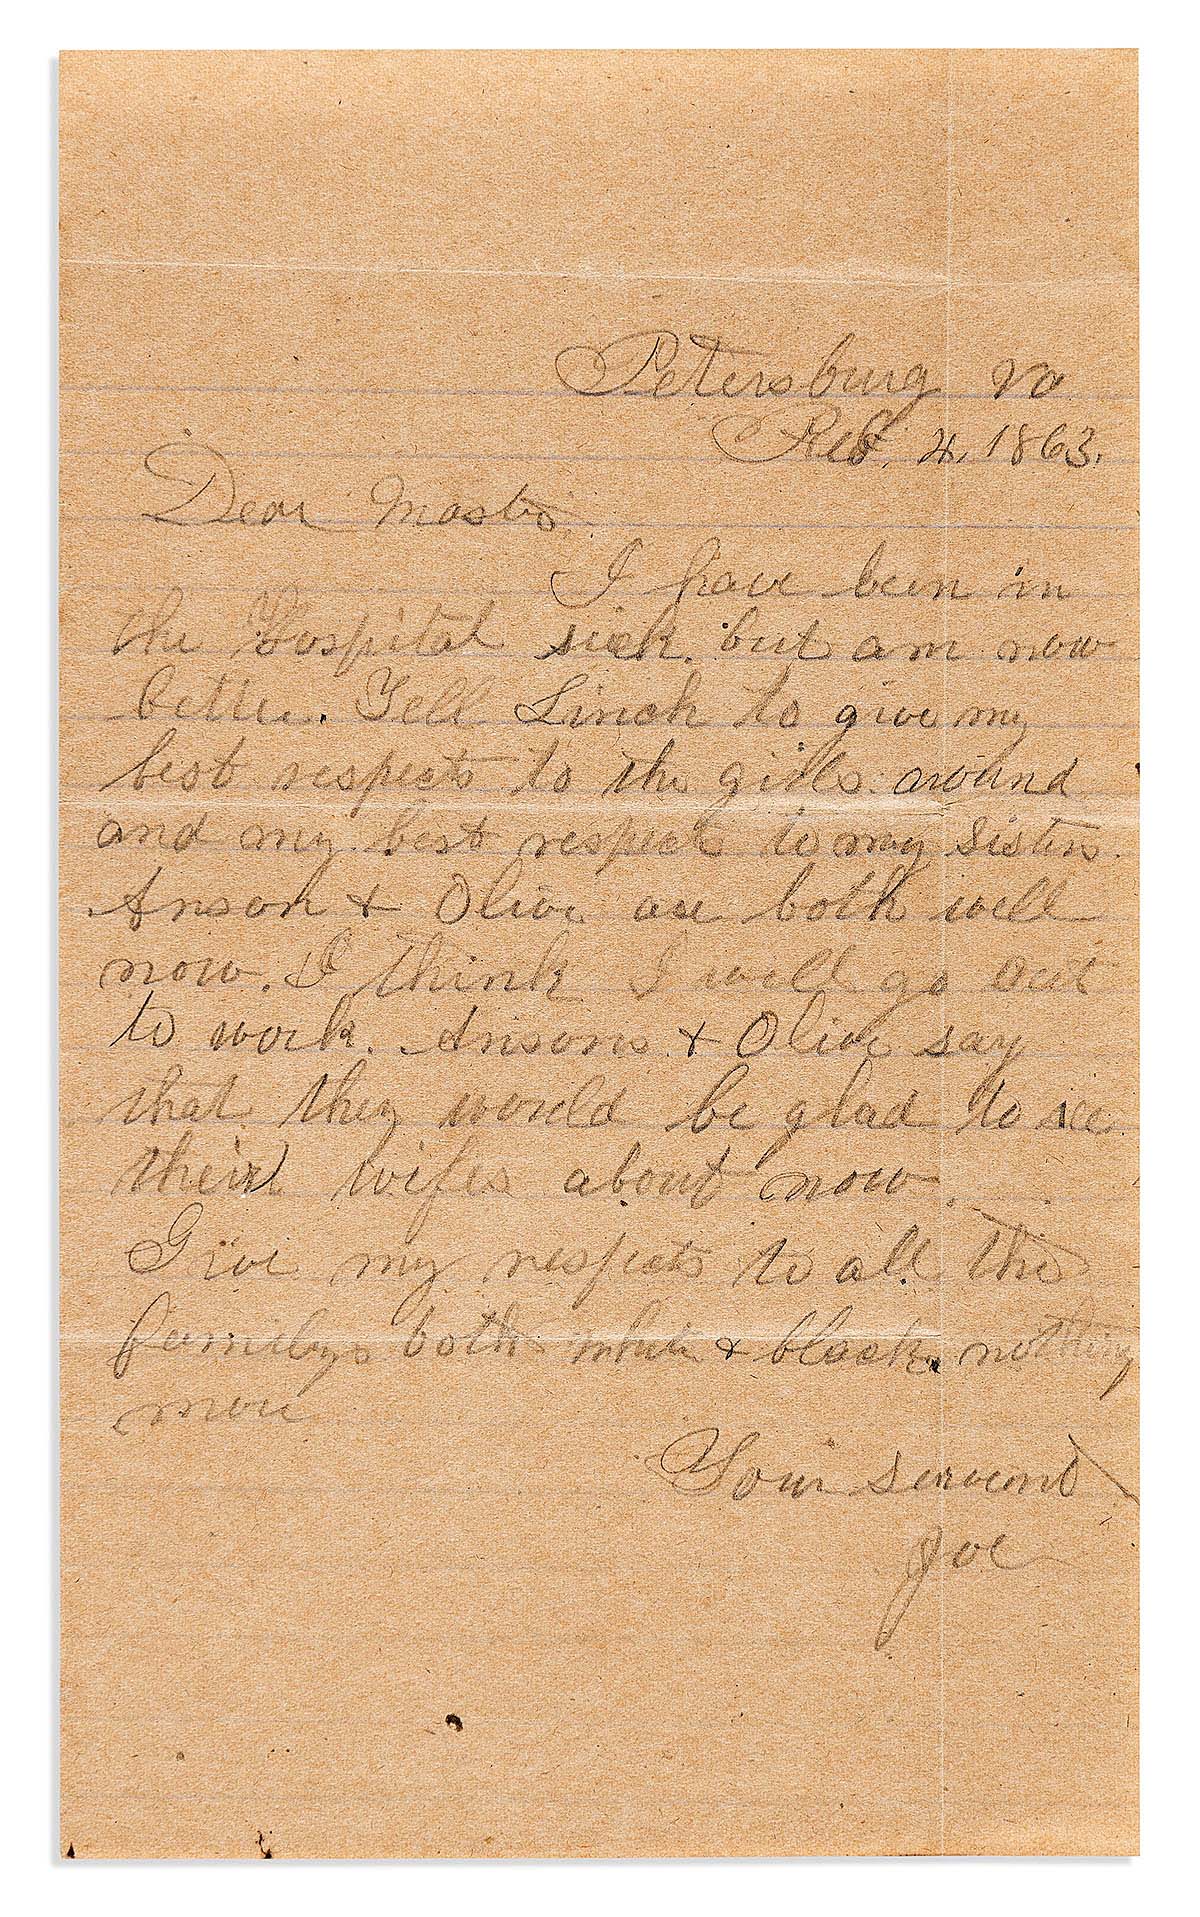 Petersburg Va
Feb. 4, 1863.
Dear Master
I have been in
the Hospital sick. but am now
better. Tell Linch to give my
best respects to the girls around
and my best respects to my Sisters.
Anson & Olive are both well
now. I think I will go out
to work. Ansons & Olive say
that they would be glad to see
their wifes about now.
Give my respects to all the
familys both white & black. nothing
more
Your servant
Joe